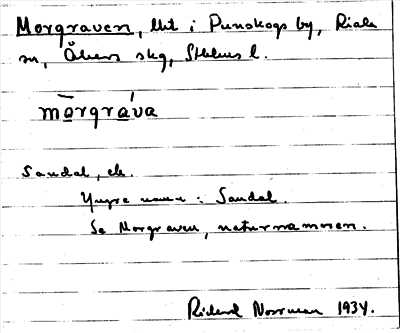 Morgraven, lht i Punskogs by, Riala
sn, Åkers skg, Sthlms l.
mōrgráva
Sandal, ek.
Yngre namn: Sandal.
Se Morgraven, naturnamnen.
Rickard Norrman 1934.